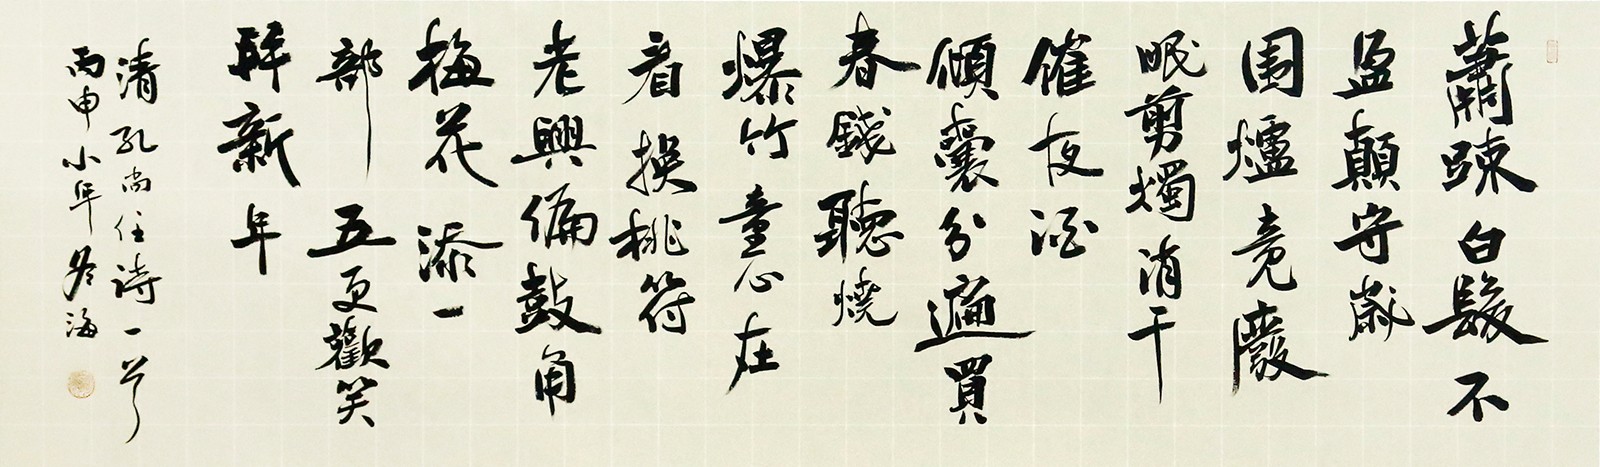 蕭踈白髮不
盈顛守歲
围爐竟廢
眠剪燭消干
催夜酒
傾囊分遍買
春錢聽燒
爆竹童心在
看换桃符
老興偏鼓角
梅花添一
部五更歡笑
拜新年
清孔尚任詩一首
丙申小年海